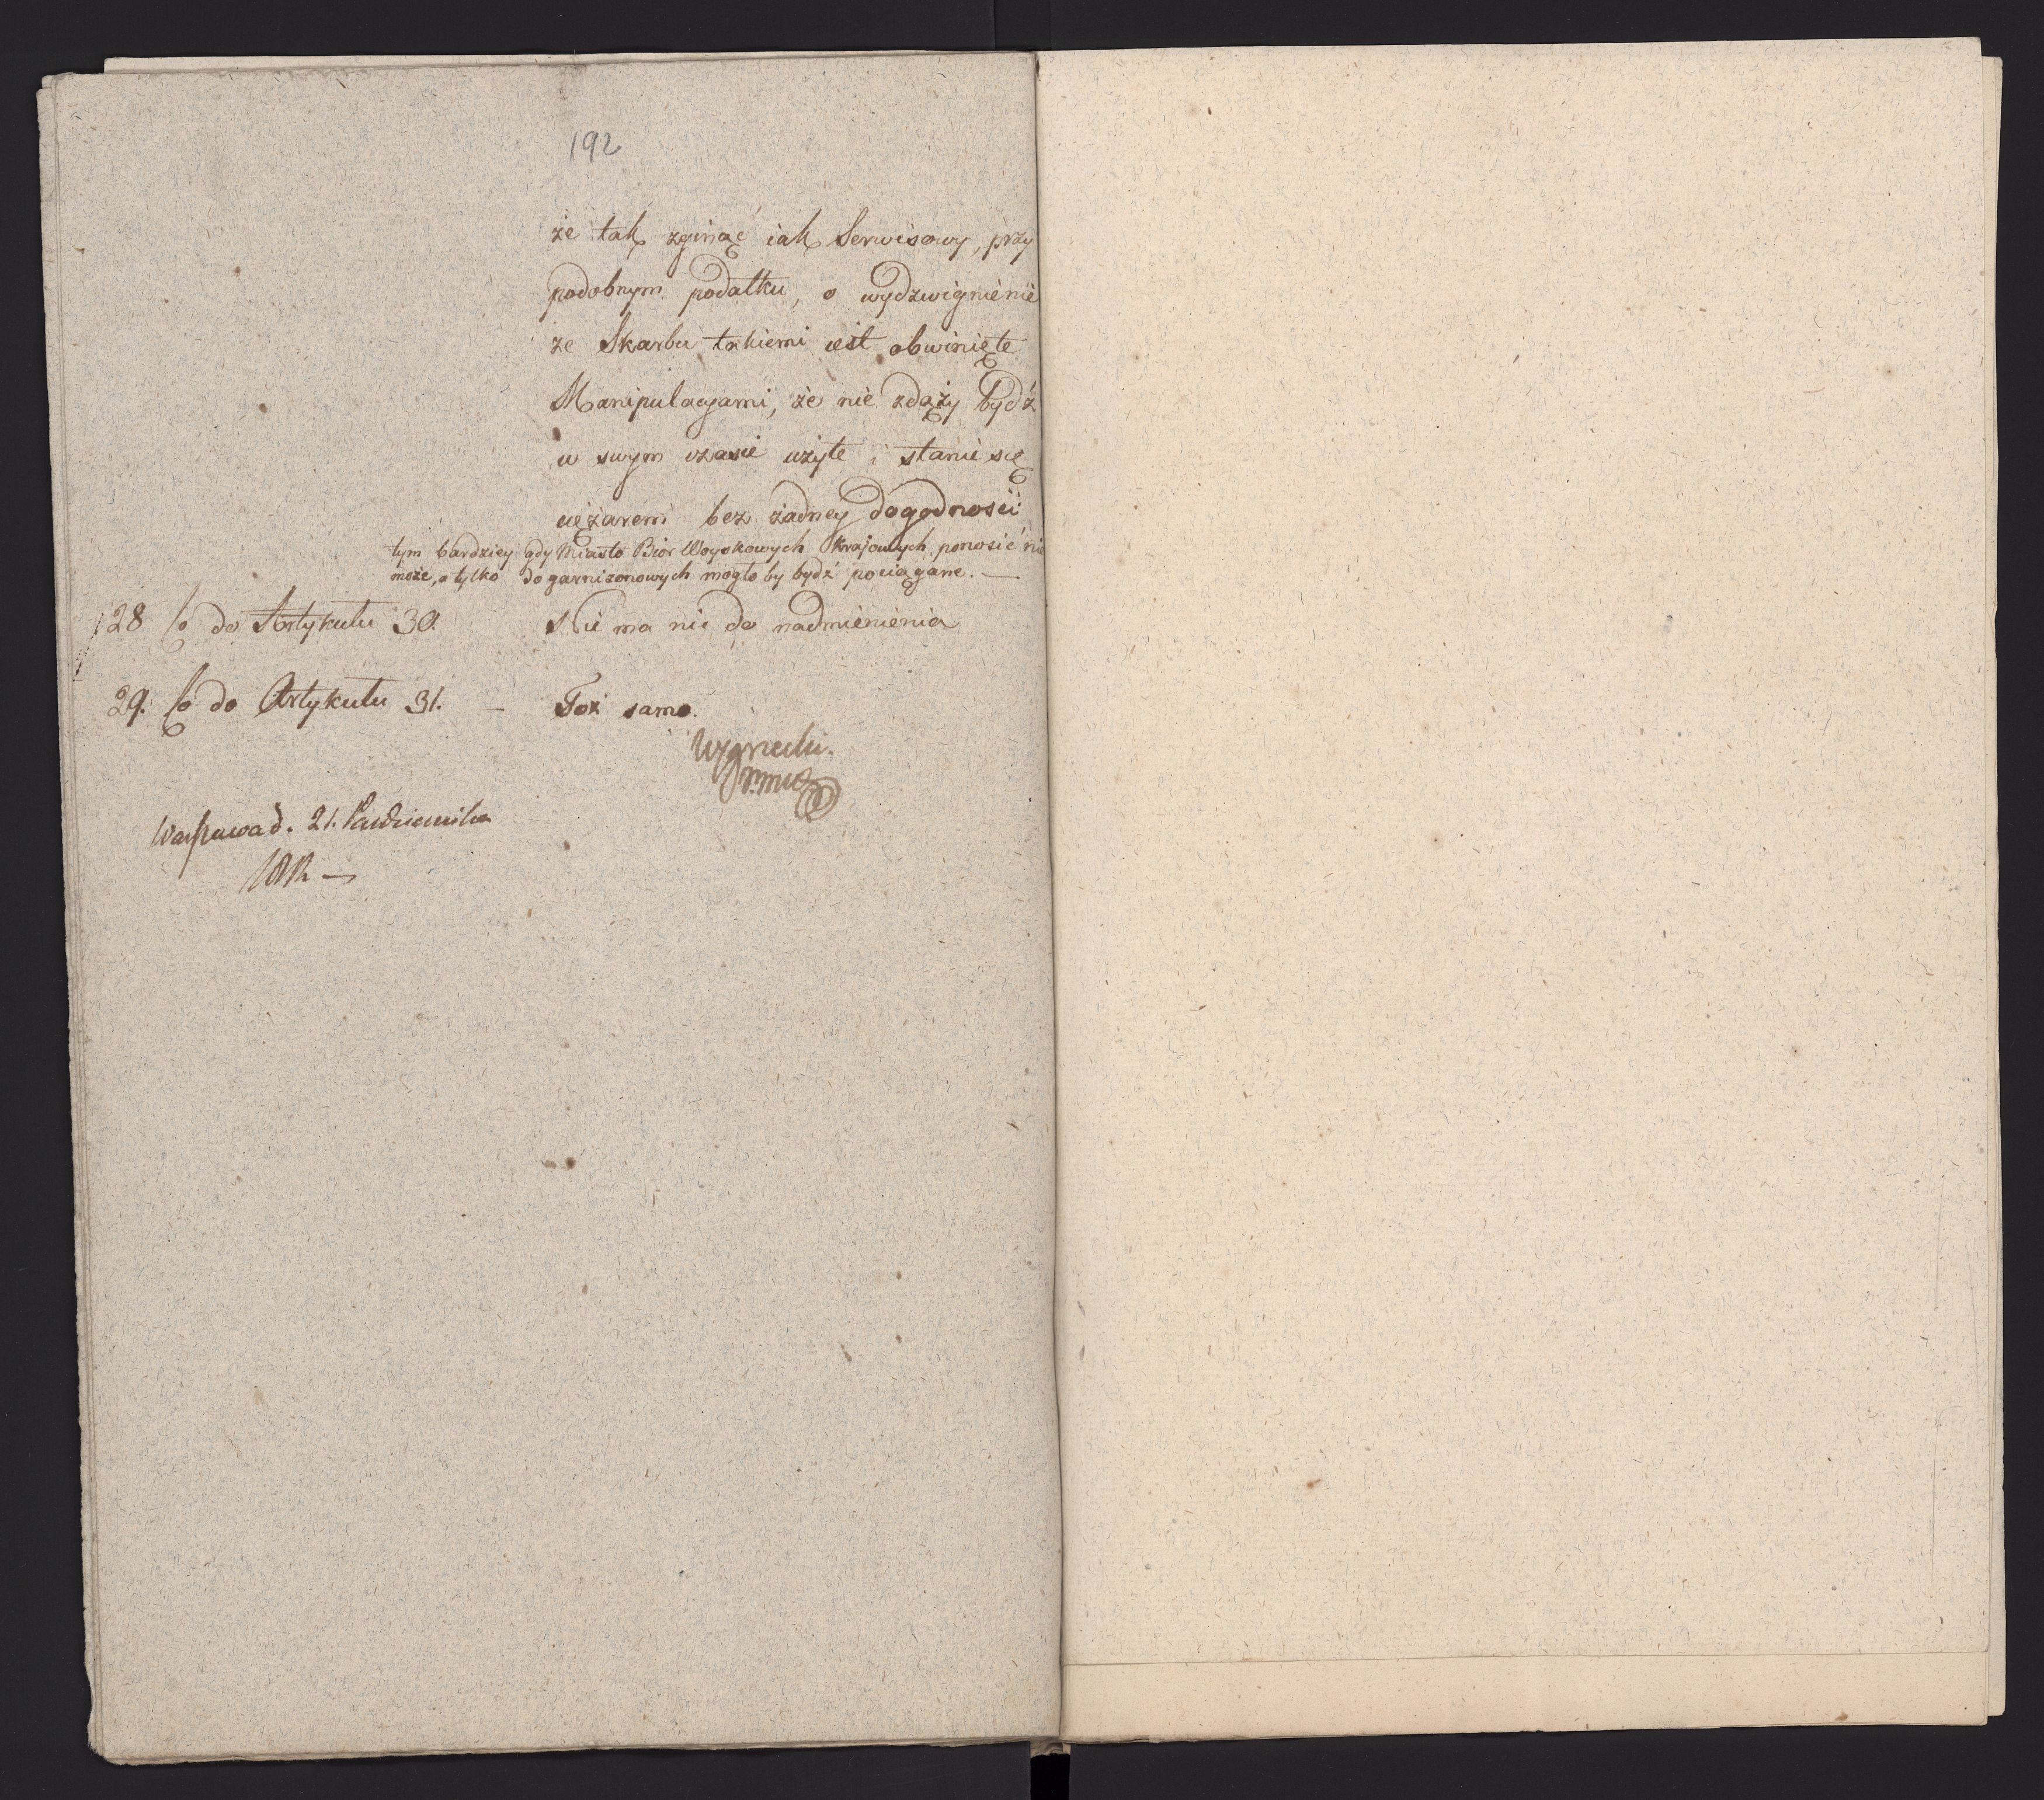 192
że tak zginąć iak Serwisowy, przy
podobnym podatku, o wydzwignienie
ze Skarbu takiemi iest obwinięte
Manipulacyami, że nie zdąży bydź
w swym czasie użyte i stanie się
ciężarem bez żadney dogodności
tym bardziey gdy Miasto Biór Woyskowych Krajowych ponosić nie
może, a tylko do garnizonowych mogło by bydź pociągane. —
28 Co do Artykułu 30. Nie ma nic do nadmienienia
29. Co do Artykułu 31. — Toż samo.
Warszawa d. 21. Października